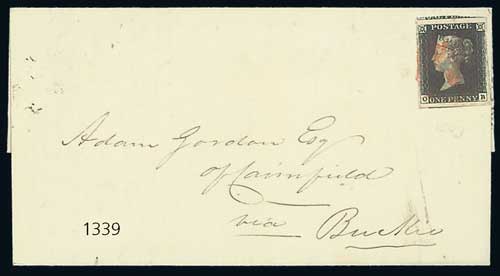 POSTAGE
ONE PENNY
Adam Gordon Esq
of Cairnfield
via Buckie
1339